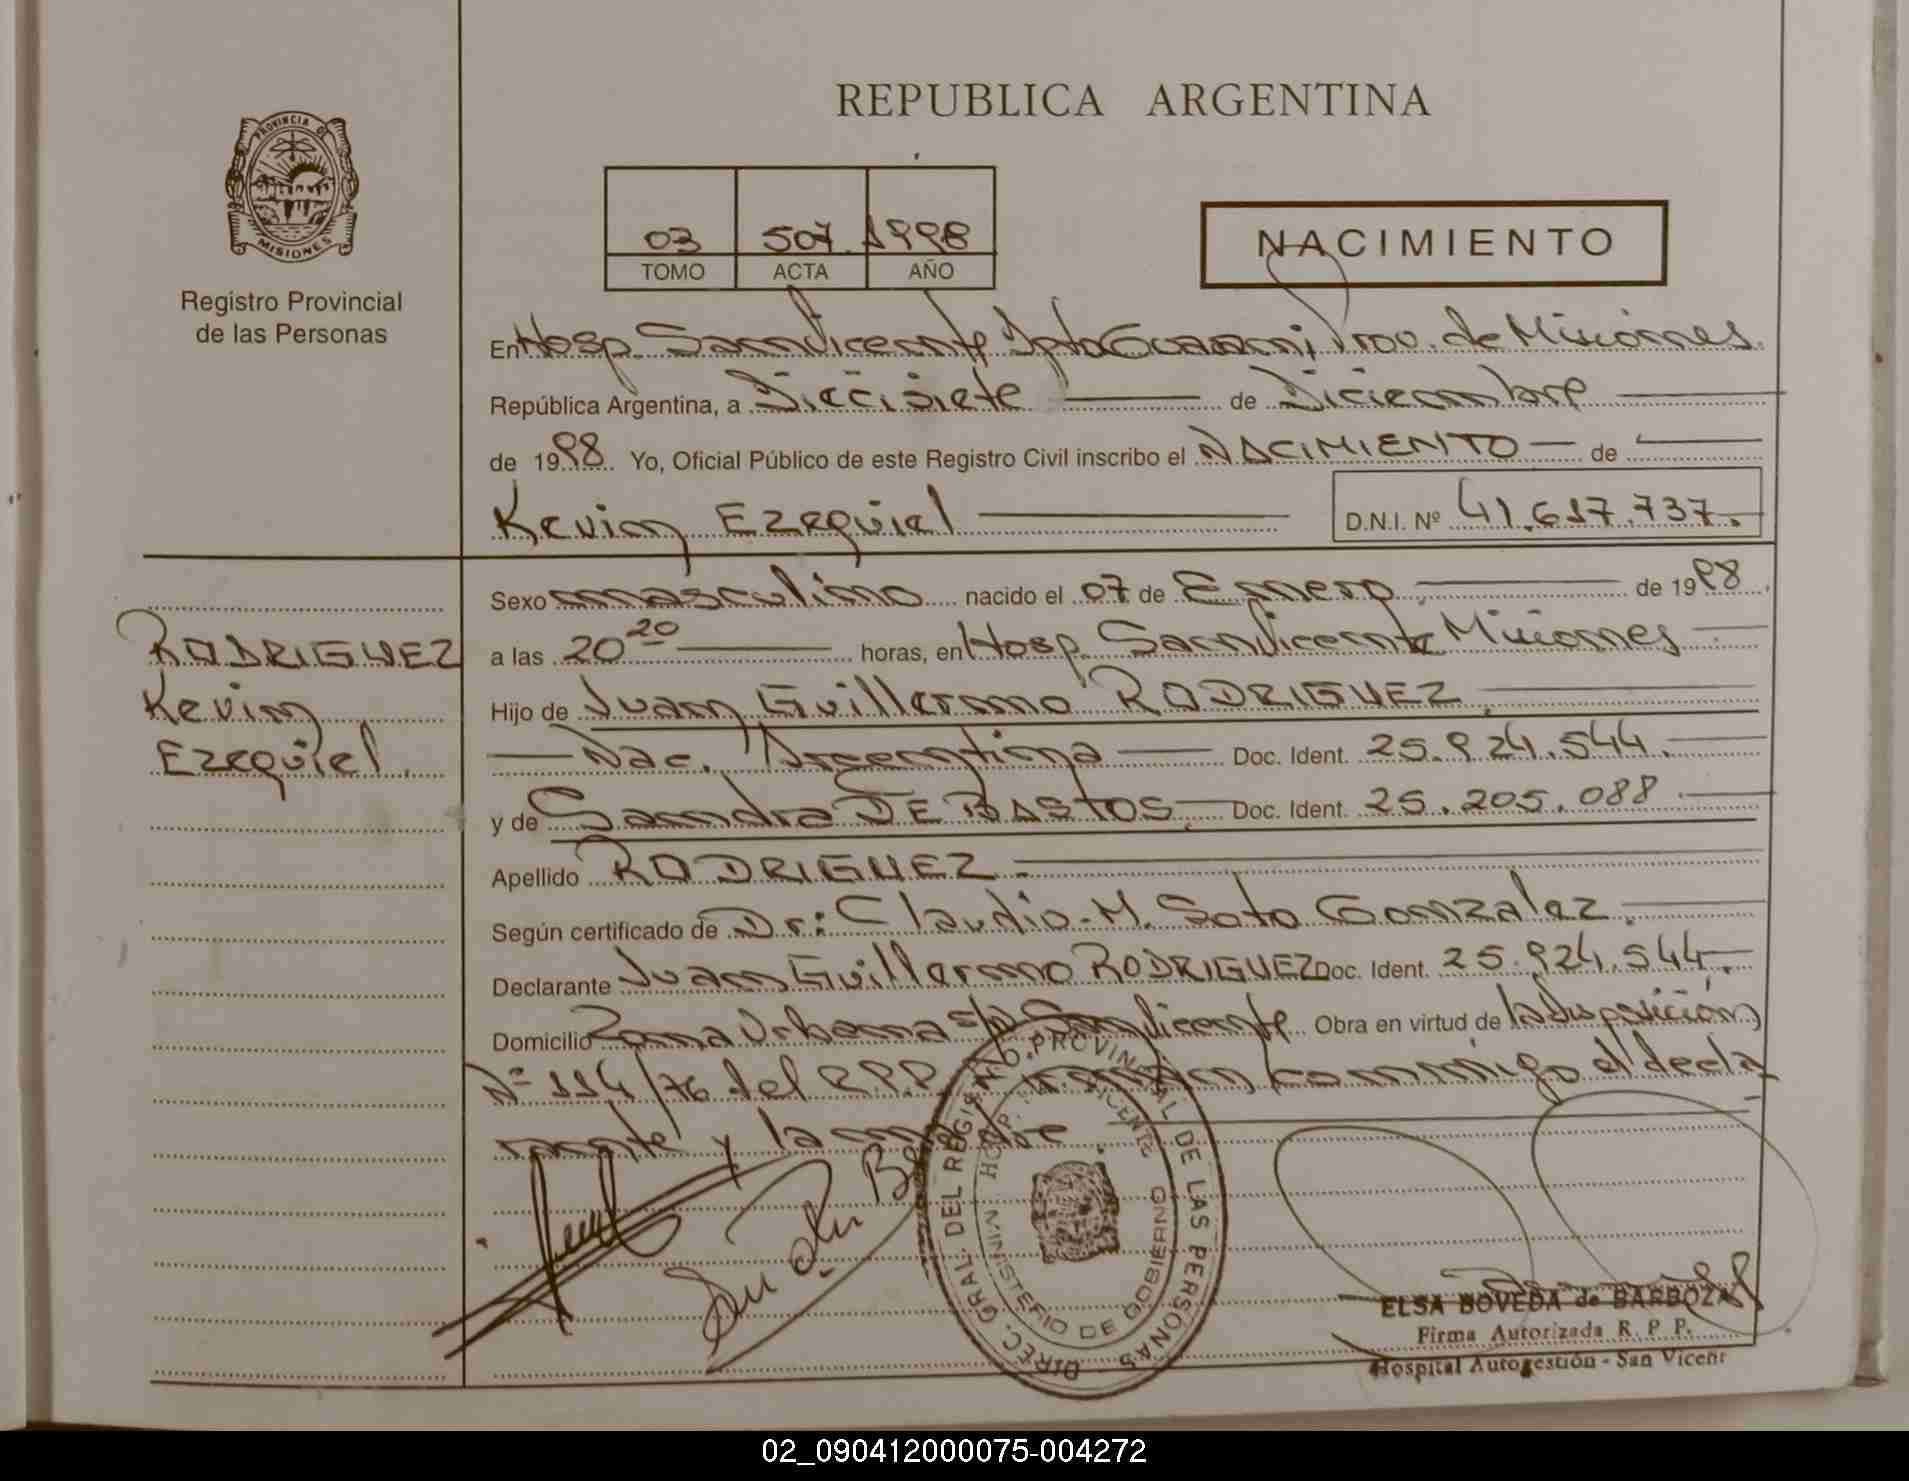 REPUBLICA ARGENTINA
PROVINCIA DE
MISIONES
Registro Provincial
de las Personas
03 507 1998
TOMO ACTA AÑO
NACIMIENTO
En Hosp. San Vicente Dpto Guaraní Prov. de Misiones.
República Argentina, a Diecisiete de Diciembre
de 1998 Yo, Oficial Público de este Registro Civil inscribo el NACIMIENTO de
Kevin Ezequiel D.N.I. Nº 41.617.737.
Sexo masculino nacido el 07 de Enero de 1998
RODRIGUEZ
Kevin
Ezequiel
a las 20 20 horas, en Hosp. San Vicente Misiones
Hijo de Juan Guillermo RODRIGUEZ.
Nac. Argentina Doc. Ident. 25.924.544.
y de Sandra DE BASTOS. Doc. Ident. 25.205.088
Apellido RODRIGUEZ.
Según certificado de Dr: Claudio M. Soto Gonzalez.
Declarante Juan Guillermo RODRIGUEZ Doc. Ident. 25.924.544.
Domicilio Zona Urbana s/n San Vicente Obra en virtud de la disposición
Nº 114/76 del R.P.P. firman conmigo el decla
rante y la madre.
DIREC. GRAL. DEL REGISTRO PROVINCIAL DE LAS PERSONAS
HOSP. VICENTE
MINISTERIO DE GOBIERNO
ELSA BOVEDA de BARBOZA
Firma Autorizada R. P. P.
Hospital Autogestión - San Vicente
02_090412000075-004272